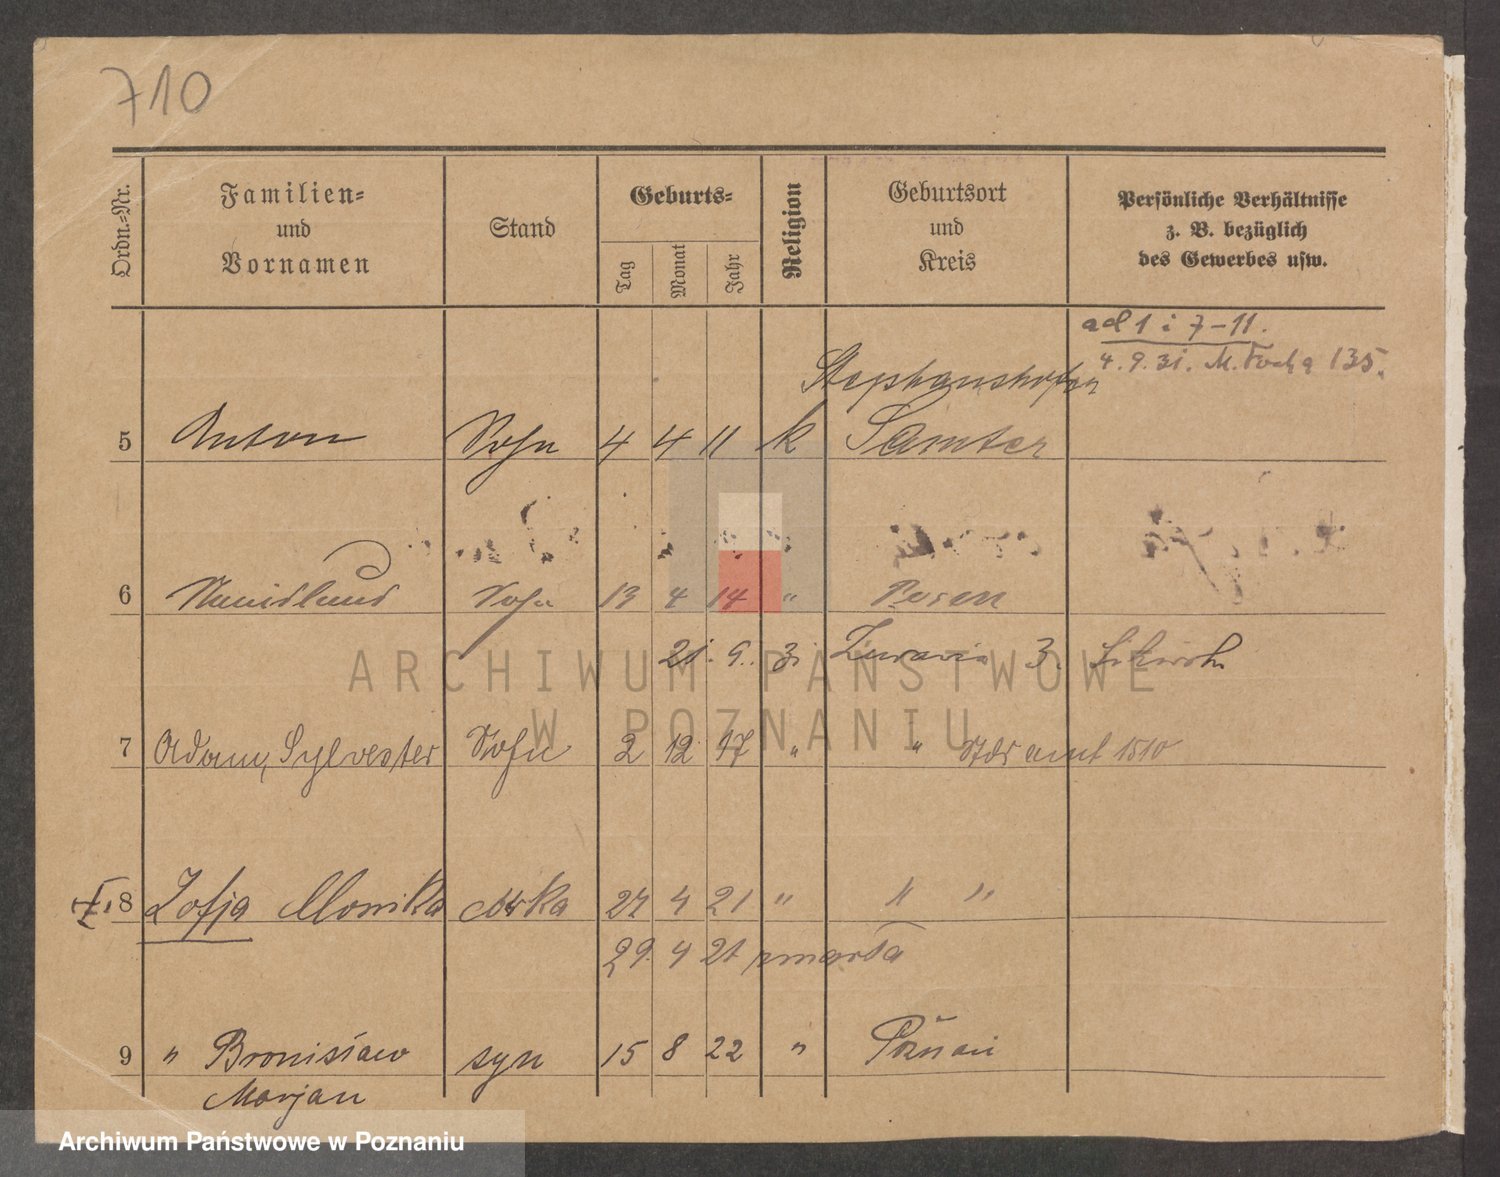 710
Ordn.-Nr.
Familien-
und
Vornamen
Stand
Geburts-
Tag
Monat
Jahr
Religion
Geburtsort
und
Kreis
Persönliche Verhältnisse
z. B. bezüglich
des Gewerbes usw.
ad 1 i 7-11.
4. 9. 31. M. Focha 135.
Stephanshofen
5 Anton Sohn 4 4 11 k Samter
6 Sohn 13 4 14 " Posen
21. 9. 31 3.
7 Adam, Sylvester Sohn 2 12 17 " " 1510
8 Zofja Monika córka 27 4 21 " " "
29. 4 21 zmarła
9 " Bronisław syn 15 8 22 " Poznań
Marjan
ARCHIWUM PAŃSTWOWE
W POZNANIU
Archiwum Państwowe w Poznaniu